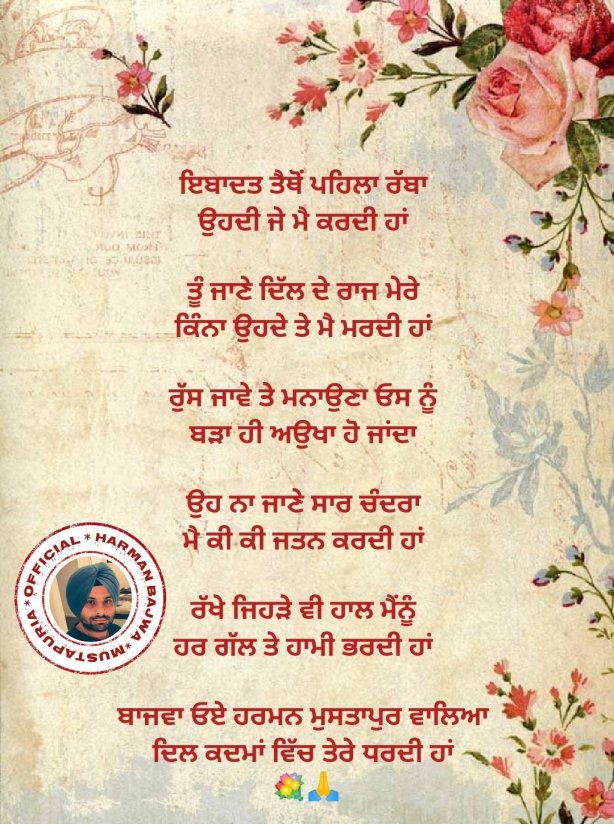 ਇਬਾਦਤ ਤੈਥੋਂ ਪਹਿਲਾ ਰੱਬਾ
ਉਹਦੀ ਜੇ ਮੈ ਕਰਦੀ ਹਾਂ
ਤੂੰ ਜਾਣੇ ਦਿੱਲ ਦੇ ਰਾਜ ਮੇਰੇ
ਕਿੰਨਾ ਉਹਦੇ ਤੇ ਮੈ ਮਰਦੀ ਹਾਂ
ਰੁੱਸ ਜਾਵੇ ਤੇ ਮਨਾਉਣਾ ਓਸ ਨੂੰ
ਬੜਾ ਹੀ ਅਉਖਾ ਹੋ ਜਾਂਦਾ
ਉਹ ਨਾ ਜਾਣੇ ਸਾਰ ਚੰਦਰਾ
ਮੈ ਕੀ ਕੀ ਜਤਨ ਕਰਦੀ ਹਾਂ
ਰੱਖੇ ਜਿਹੜੇ ਵੀ ਹਾਲ ਮੈਂਨੂੰ
ਹਰ ਗੱਲ ਤੇ ਹਾਮੀ ਭਰਦੀ ਹਾਂ
ਬਾਜਵਾ ਓਏ ਹਰਮਨ ਮੁਸਤਾਪੁਰ ਵਾਲਿਆ
ਦਿਲ ਕਦਮਾਂ ਵਿੱਚ ਤੇਰੇ ਧਰਦੀ ਹਾਂ
💐🙏
OFFICIAL * HARMAN BAJWA * MUSTAPURIA *